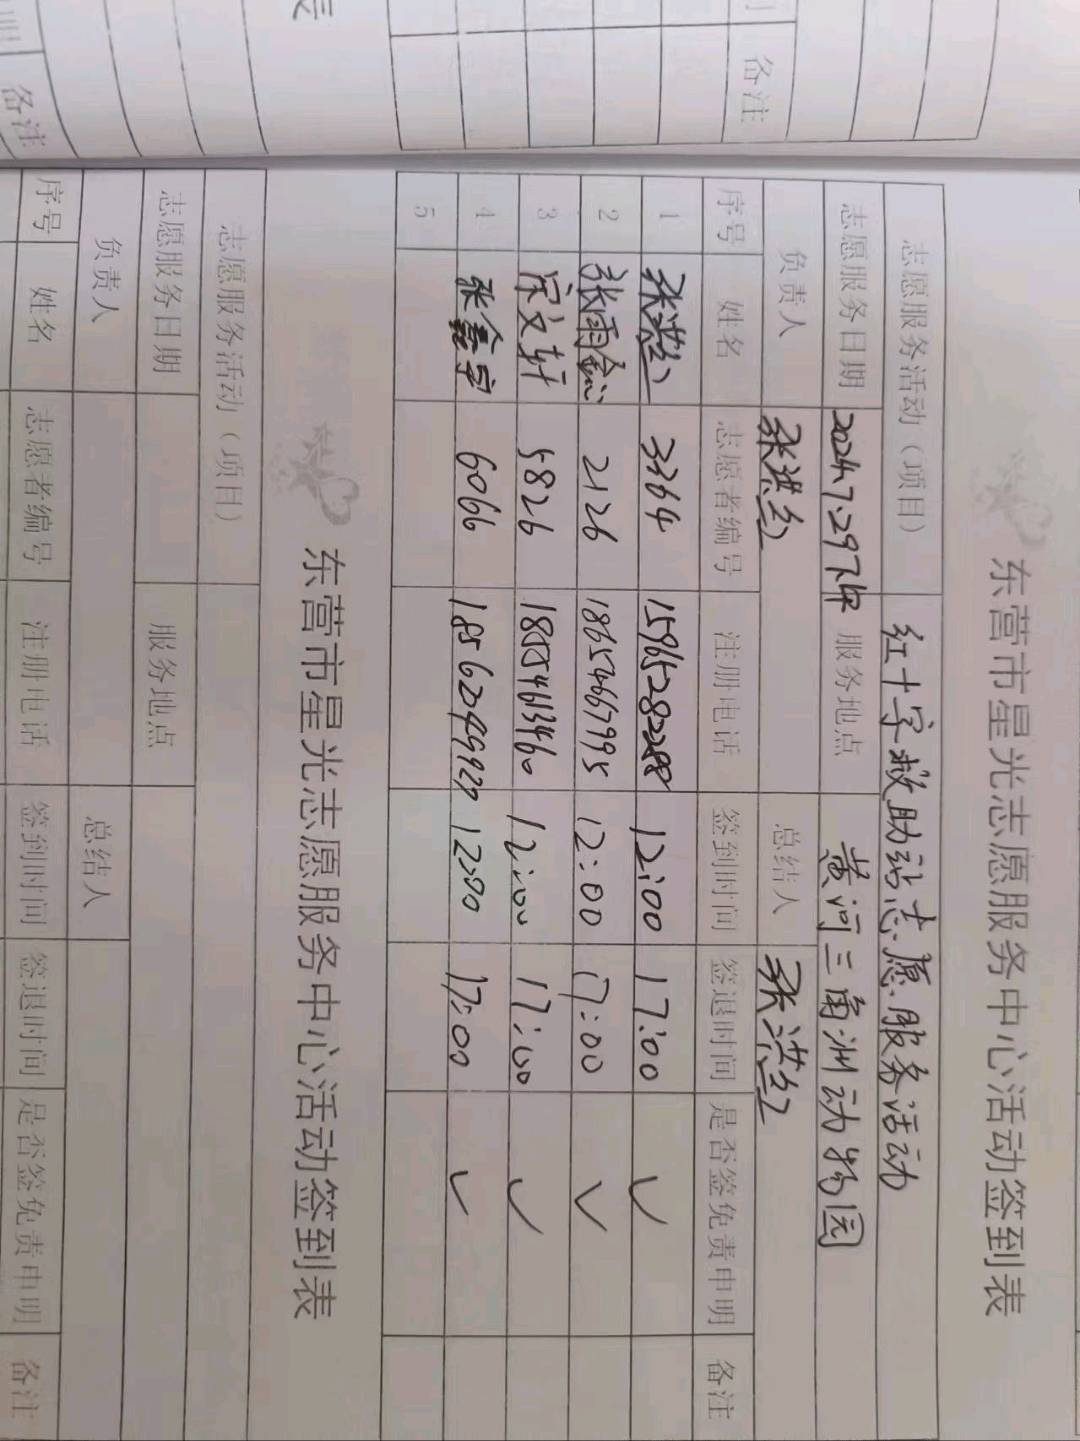 备注
备注
东营市星光志愿服务中心活动签到表
志愿服务活动（项目） 红十字救助站志愿服务活动
志愿服务日期 2024.7.29下午 服务地点 黄河三角洲动物园
负责人 张洪红 总结人 张洪红
序号 姓名 志愿者编号 注册电话 签到时间 签退时间 是否签免责申明 备注
1 张洪红 3364 15965282288 12:00 17:00 ✓
2 张雨 2126 18654667995 12:00 17:00 ✓
3 宋文轩 5826 18554613460 12:00 17:00 ✓
4 张鑫宇 6066 18562099929 12:00 17:00 ✓
5
东营市星光志愿服务中心活动签到表
志愿服务活动（项目）
志愿服务日期 服务地点
负责人 总结人
序号 姓名 志愿者编号 注册电话 签到时间 签退时间 是否签免责申明 备注